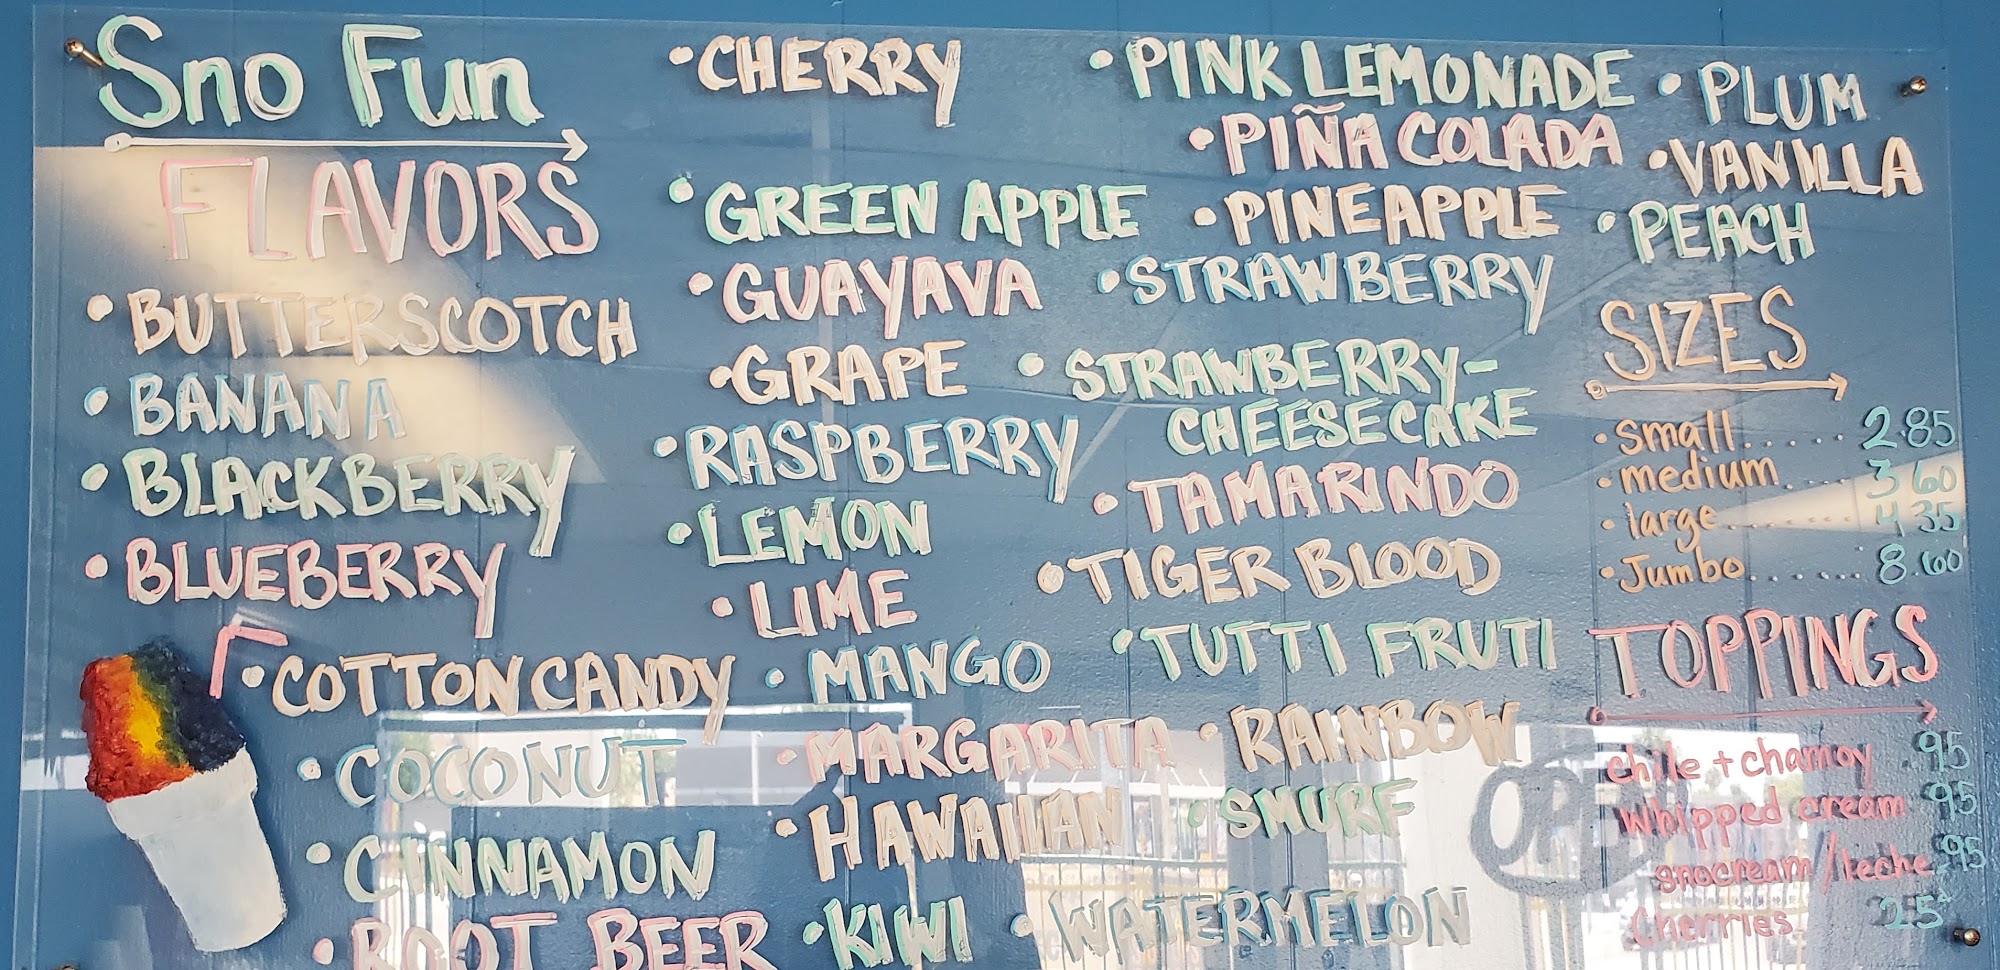 Sno Fun
FLAVORS
• BUTTERSCOTCH
• BANANA
• BLACKBERRY
• BLUEBERRY
• COTTON CANDY
• COCONUT
• CINNAMON
• ROOT BEER
• CHERRY
• GREEN APPLE
• GUAYAVA
• GRAPE
• RASPBERRY
• LEMON
• LIME
• MANGO
• MARGARITA
• HAWAIIAN
• KIWI
• PINK LEMONADE
• PIÑA COLADA
• PINEAPPLE
• STRAWBERRY
• STRAWBERRY-
CHEESECAKE
• TAMARINDO
• TIGER BLOOD
• TUTTI FRUTI
• RAINBOW
• SMURF
• WATERMELON
• PLUM
• VANILLA
• PEACH
SIZES
• small...... 2 85
• medium..... 3 60
• large....... 4 35
• Jumbo....... 8.60
TOPPINGS
chile + chamoy .95
whipped cream 95
snocream/leche .95
Cherries 25¢
OPE